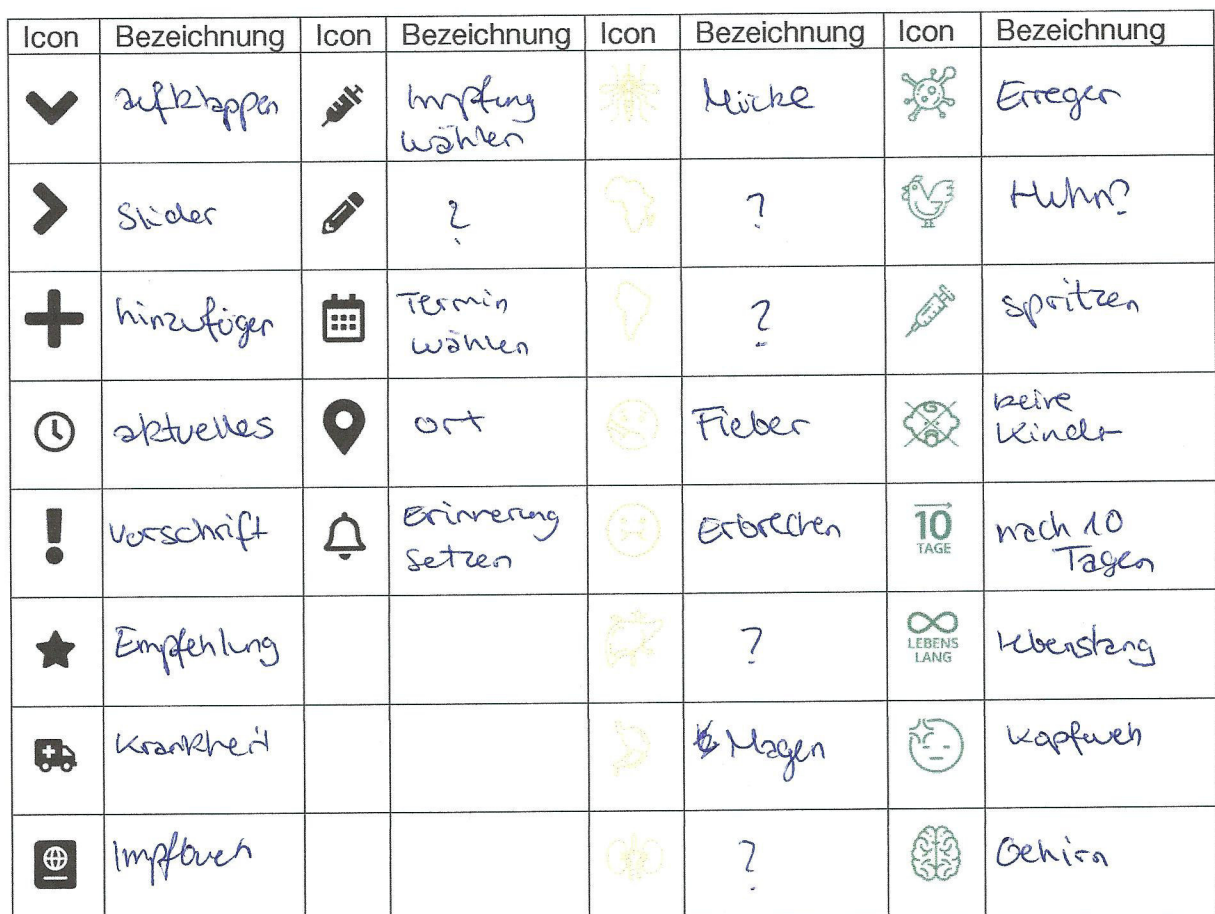 Icon Bezeichnung Icon Bezeichnung Icon Bezeichnung Icon Bezeichnung
aufklappen Impfung Mücke Erreger
wählen
Slider ? ? Huhn?
hinzufügen Termin ? spritzen
wählen
aktuelles ort Fieber keine
Kinder
Vorschrift Erinnerung Erbrechen 10 nach 10
setzen TAGE Tagen
Empfehlung ? LEBENS lebenslang
LANG
Krankheit Magen Kopfweh
Impfbuch ? Gehirn